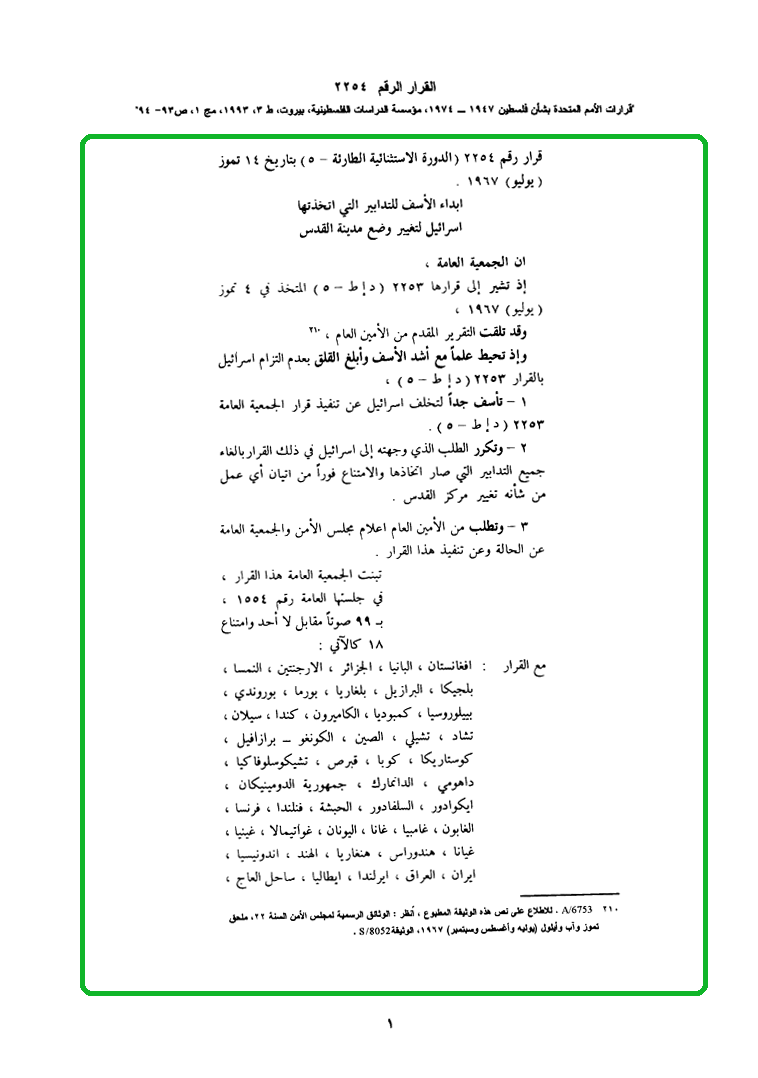 القرار الرقم ٢٢٥٤
"قرارات الأمم المتحدة بشأن فلسطين ١٩٤٧ ــ ١٩٧٤، مؤسسة الدراسات الفلسطينية، بيروت، ط ٣، ١٩٩٣، مج ١، ص٩٣- ٩٤"
قرار رقم ٢٢٥٤ (الدورة الاستثنائية الطارئة – ٥) بتاريخ ١٤ تموز
(يوليو) ١٩٦٧ .
ابداء الأسف للتدابير التي اتخذتها
اسرائيل لتغيير وضع مدينة القدس
ان الجمعية العامة ،
إذ تشير إلى قرارها ٢٢٥٣ (د إ ط – ٥) المتخذ في ٤ تموز
(يوليو) ١٩٦٧ ،
وقد تلقت التقرير المقدم من الأمين العام ، ٢١٠
وإذ تحيط علماً مع أشد الأسف وأبلغ القلق بعدم التزام اسرائيل
بالقرار ٢٢٥٣ (د إ ط – ٥) ،
١ – تأسف جداً لتخلف اسرائيل عن تنفيذ قرار الجمعية العامة
٢٢٥٣ (د إ ط – ٥) .
٢ – وتكرر الطلب الذي وجهته إلى اسرائيل في ذلك القرار بالغاء
جميع التدابير التي صار اتخاذها والامتناع فوراً من اتيان أي عمل
من شأنه تغيير مركز القدس .
٣ – وتطلب من الأمين العام اعلام مجلس الأمن والجمعية العامة
عن الحالة وعن تنفيذ هذا القرار .
تبنت الجمعية العامة هذا القرار ،
في جلستها العامة رقم ١٥٥٤ ،
بـ ٩٩ صوتاً مقابل لا أحد وامتناع
١٨ كالآتي :
مع القرار : افغانستان ، البانيا ، الجزائر ، الارجنتين ، النمسا ،
بلجيكا ، البرازيل ، بلغاريا ، بورما ، بوروندي ،
بييلوروسيا ، كمبوديا ، الكاميرون ، كندا ، سيلان ،
تشاد ، تشيلي ، الصين ، الكونغو ــ برازافيل ،
كوستاريكا ، كوبا ، قبرص ، تشيكوسلوفاكيا ،
داهومي ، الدانمارك ، جمهورية الدومينيكان ،
ايكوادور ، السلفادور ، الحبشة ، فنلندا ، فرنسا ،
الغابون ، غامبيا ، غانا ، اليونان ، غواتيمالا ، غينيا ،
غيانا ، هندوراس ، هنغاريا ، الهند ، اندونيسيا ،
ايران ، العراق ، ايرلندا ، ايطاليا ، ساحل العاج ،
٢١٠ A/6753 . للاطلاع على نص هذه الوثيقة المطبوع ، أنظر : الوثائق الرسمية لمجلس الأمن السنة ٢٢، ملحق
تموز وآب وأيلول (يوليه وأغسطس وسبتمبر) ١٩٦٧، الوثيقة S/8052 .
١